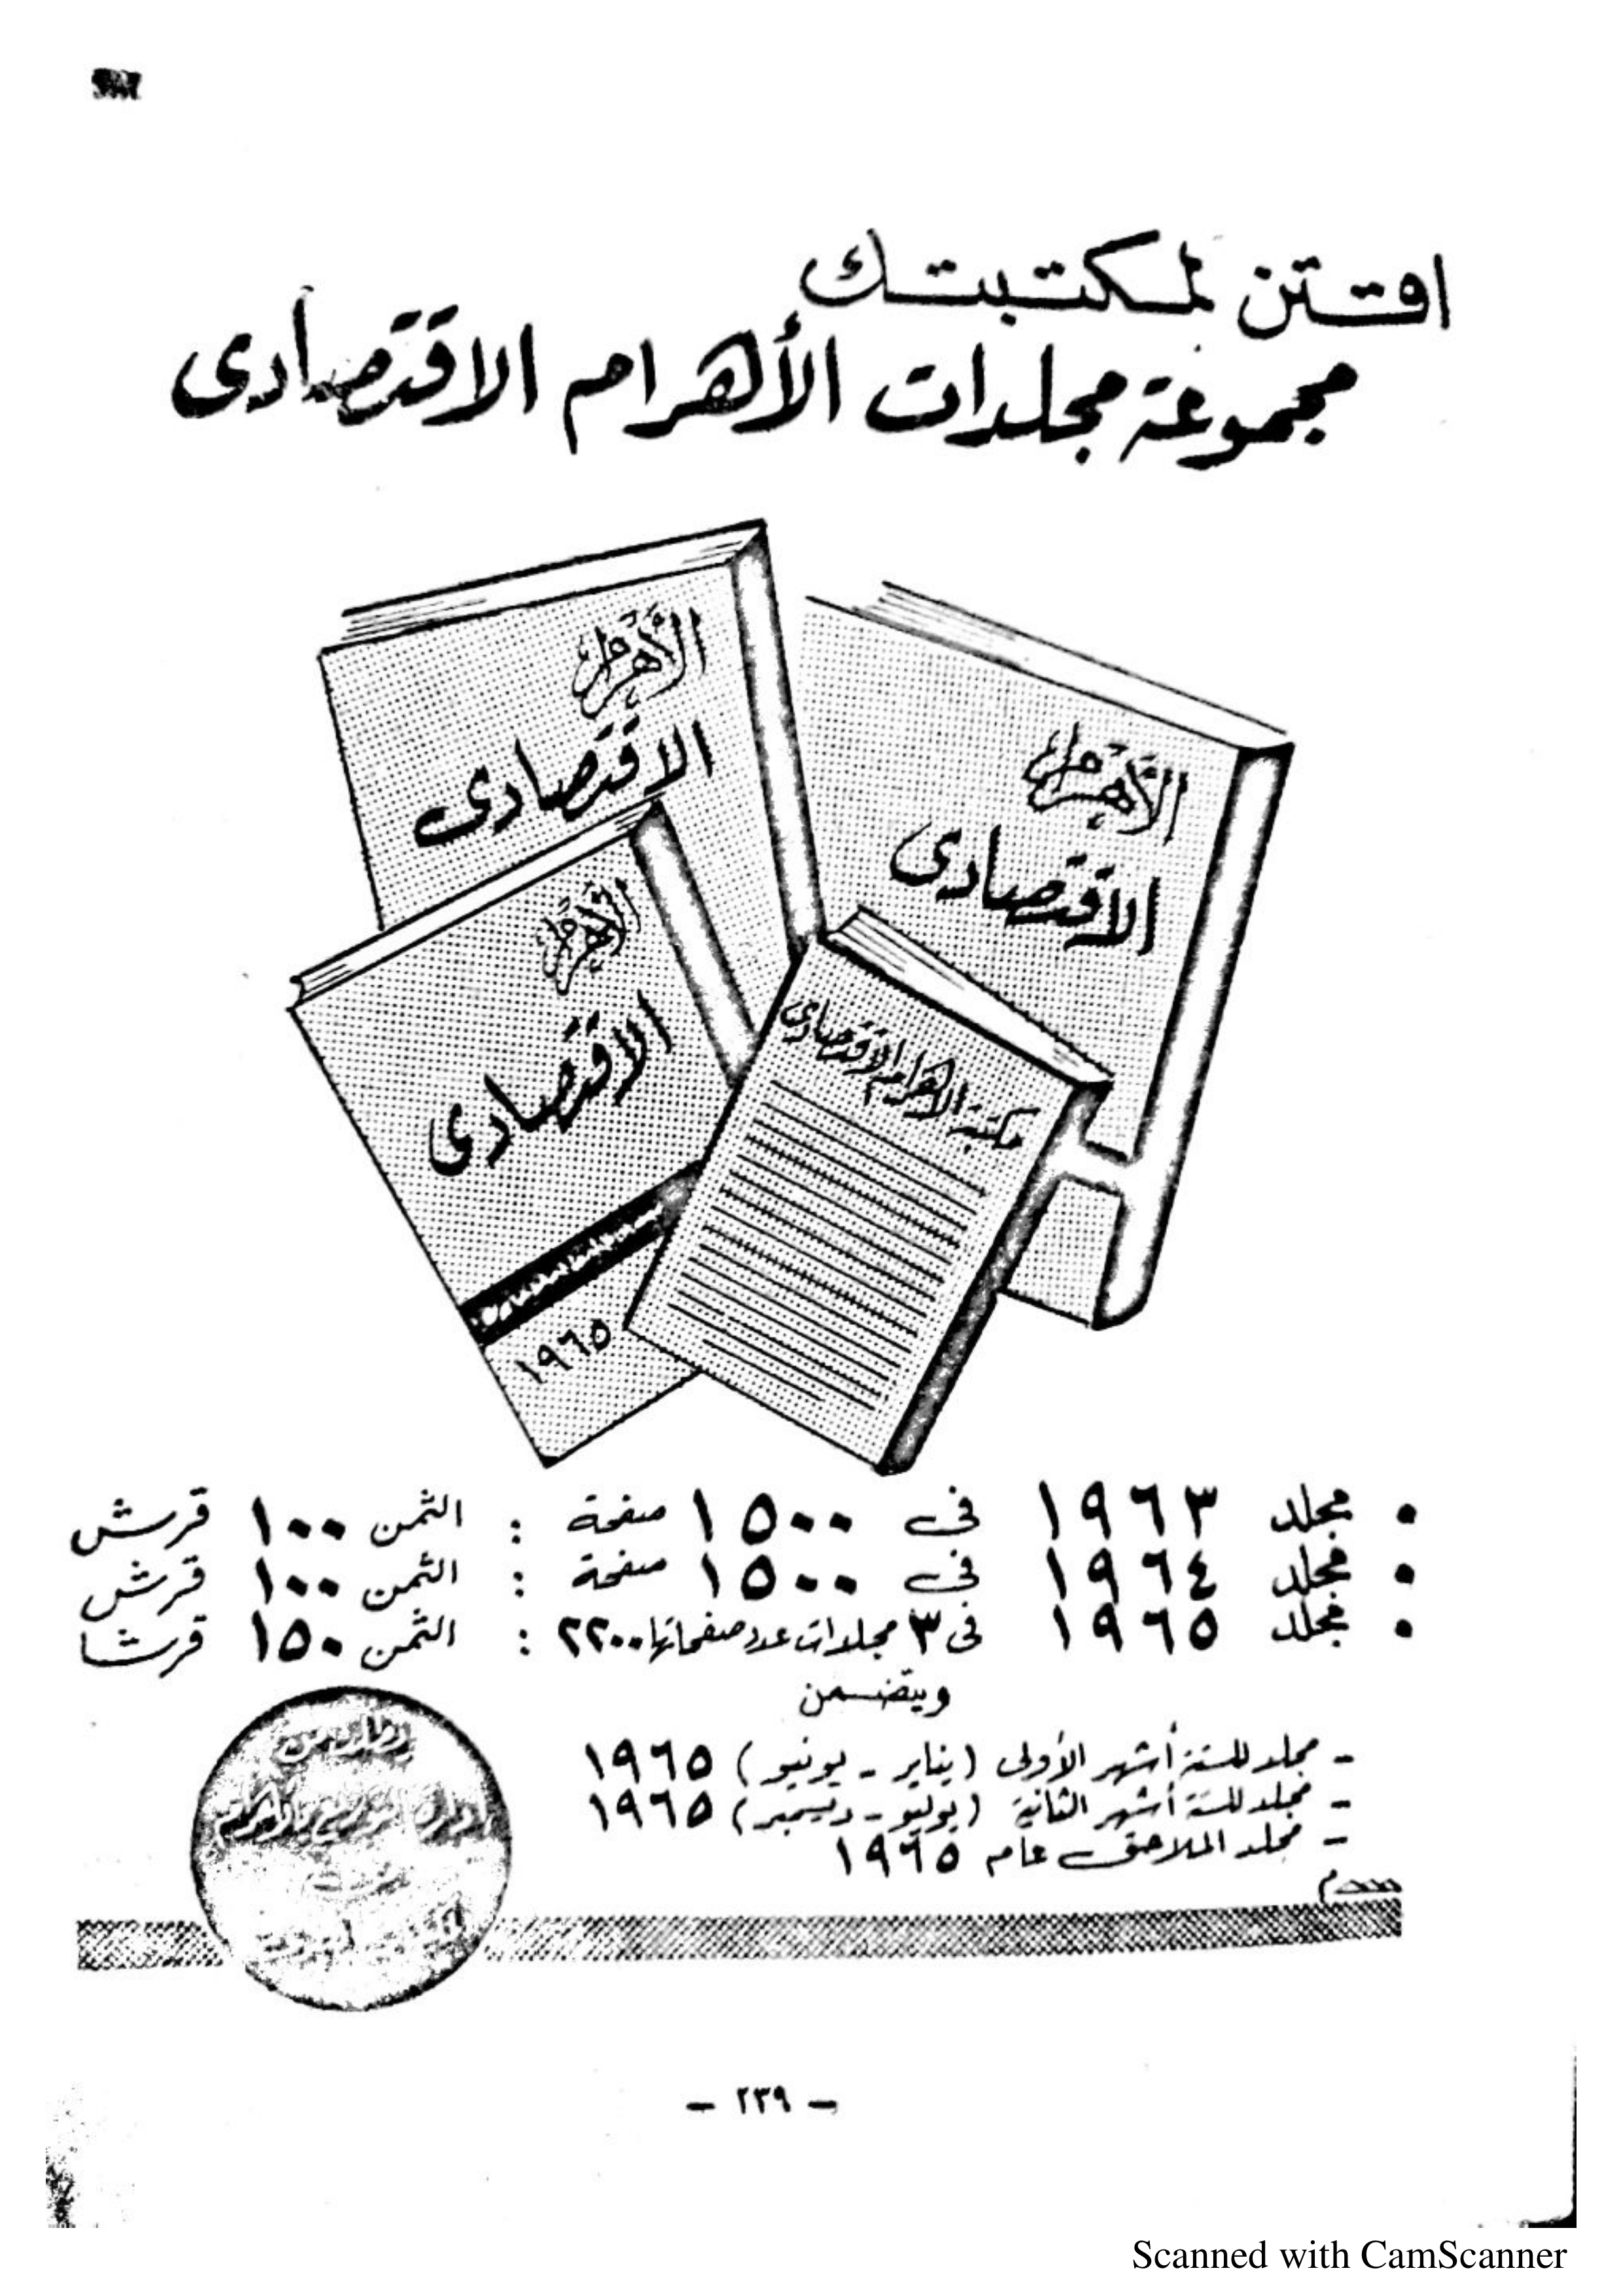 اقتن لمكتبتك
مجموعة مجلدات الأهرام الاقتصادى
الأهرام
الاقتصادى
الأهرام
الاقتصادى
الأهرام
الاقتصادى
١٩٦٥
مكتبة الاهرام الاقتصادى
• مجلد ١٩٦٣ فى ١٥٠٠ صفحة : الثمن ١٠٠ قرش
• مجلد ١٩٦٤ فى ١٥٠٠ صفحة : الثمن ١٠٠ قرش
• مجلد ١٩٦٥ فى ٣ مجلدات عدد صفحاتها ٢٢٠٠ : الثمن ١٥٠ قرشا
ويتضمن
- مجلد للستة أشهر الأولى (يناير - يونيو) ١٩٦٥
- مجلد للستة أشهر الثانية (يوليو - ديسمبر) ١٩٦٥
- مجلد الملاحق عام ١٩٦٥
إدارة التوزيع بالأهرام
- ٢٣٩ -
Scanned with CamScanner